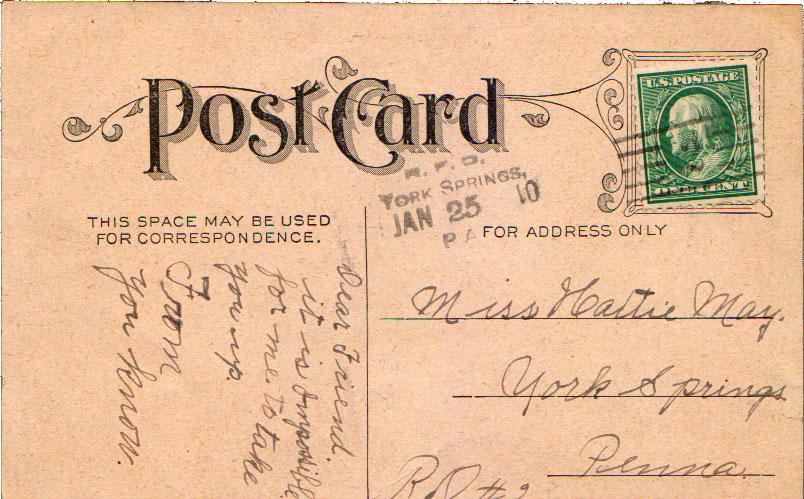 Post Card
U.S. POSTAGE
ONE CENT
R. F. D.
YORK SPRINGS,
JAN 25 10
PA
THIS SPACE MAY BE USED
FOR CORRESPONDENCE.
FOR ADDRESS ONLY
Dear Friend
it is Impossible
for me to take
you up.
From
You Know.
Miss Hattie May.
York Springs
Penna.